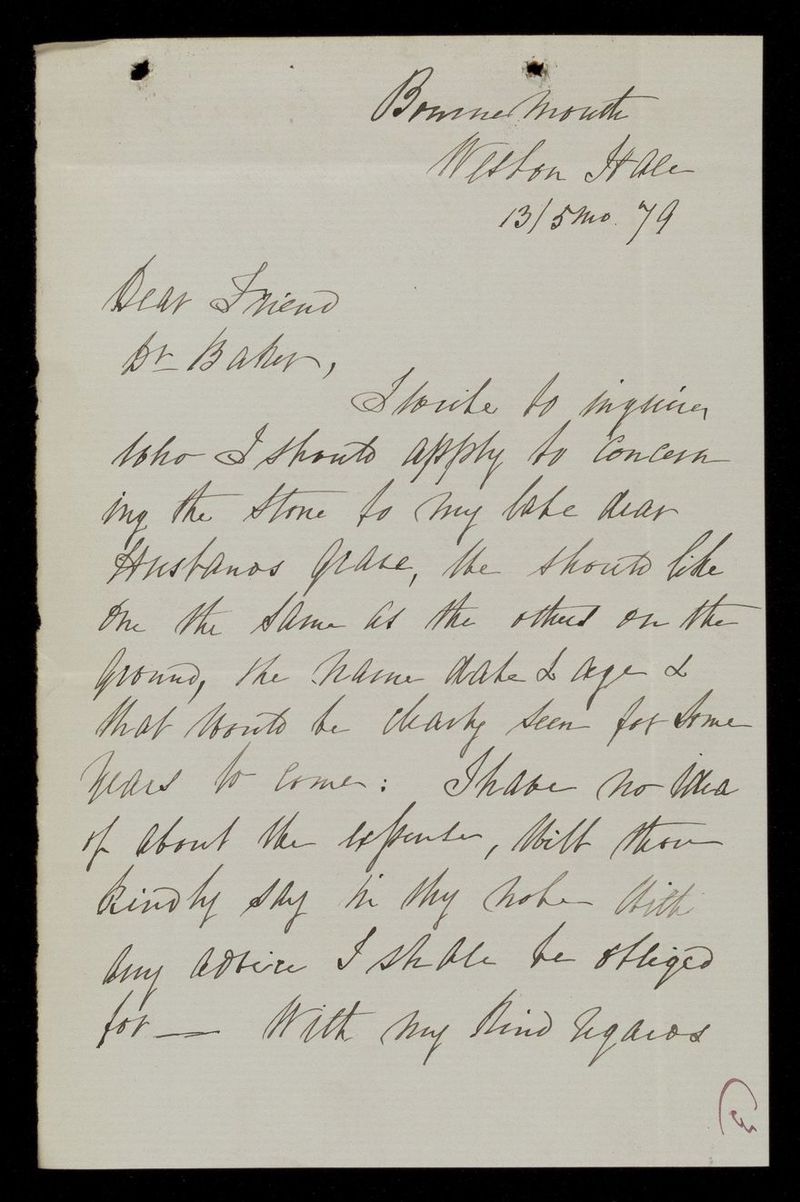 Bournemouth
Weston Hall
13/5 mo. 79
Dear Friend
Dr Baker,
I write to inquire
who I should apply to concern
ing the stone to my late dear
Husbands grave, We should like
one the same as the others on the
ground, the name date & age &
that would be clearly seen for some
years to come: I have no idea
of about the expense, Will thou
kindly say in thy note With
any advice I shall be obliged
for — With my kind regards